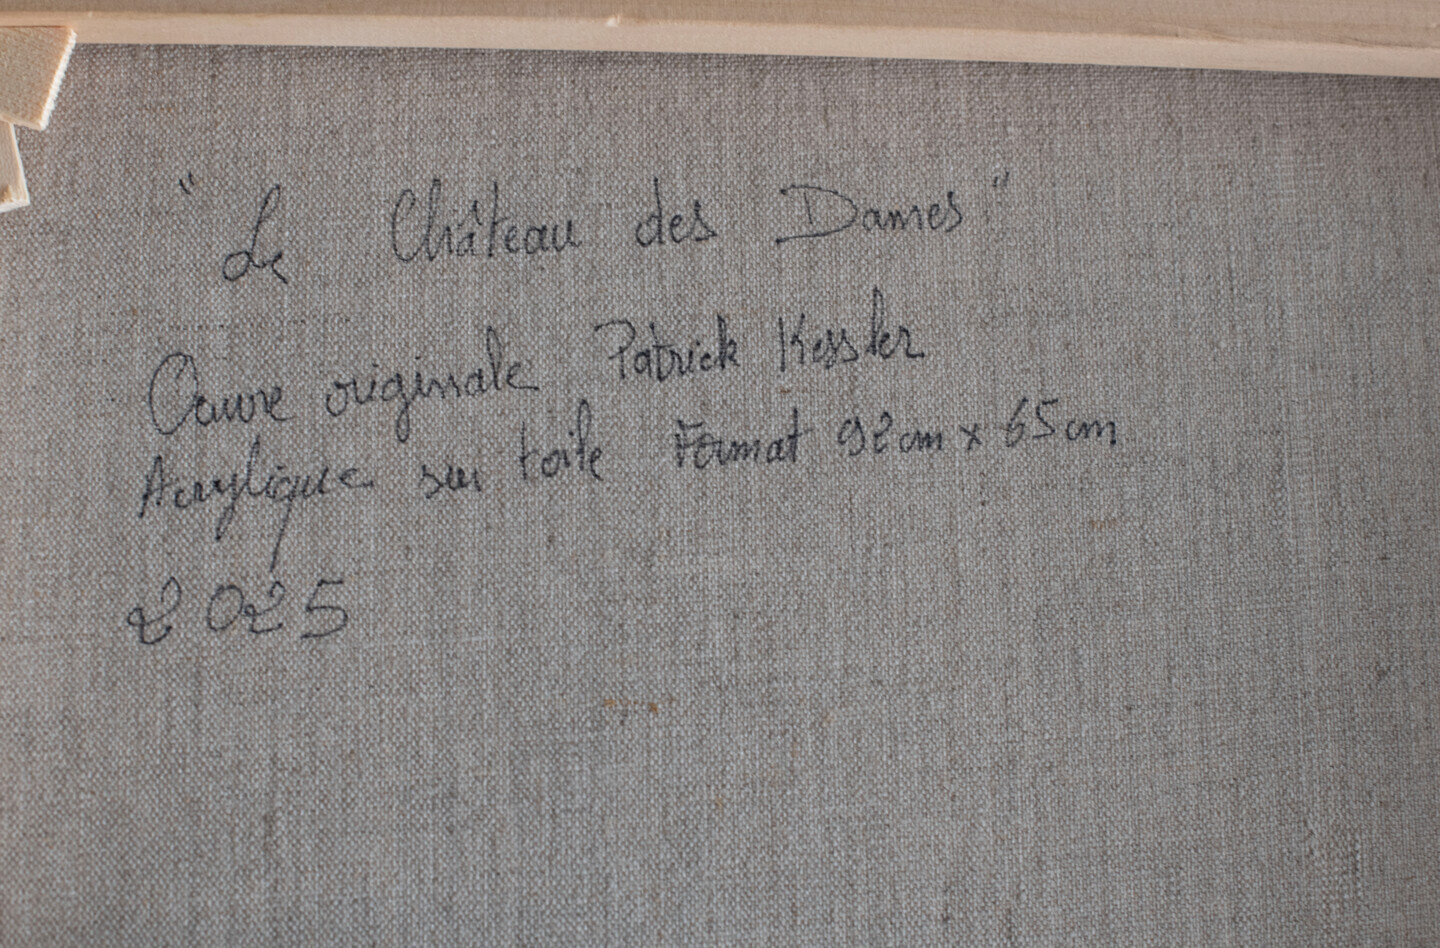 "Le Château des Dames"
Oeuvre originale Patrick Kessler
Acrylique sur toile Format 92cm x 65cm
2025